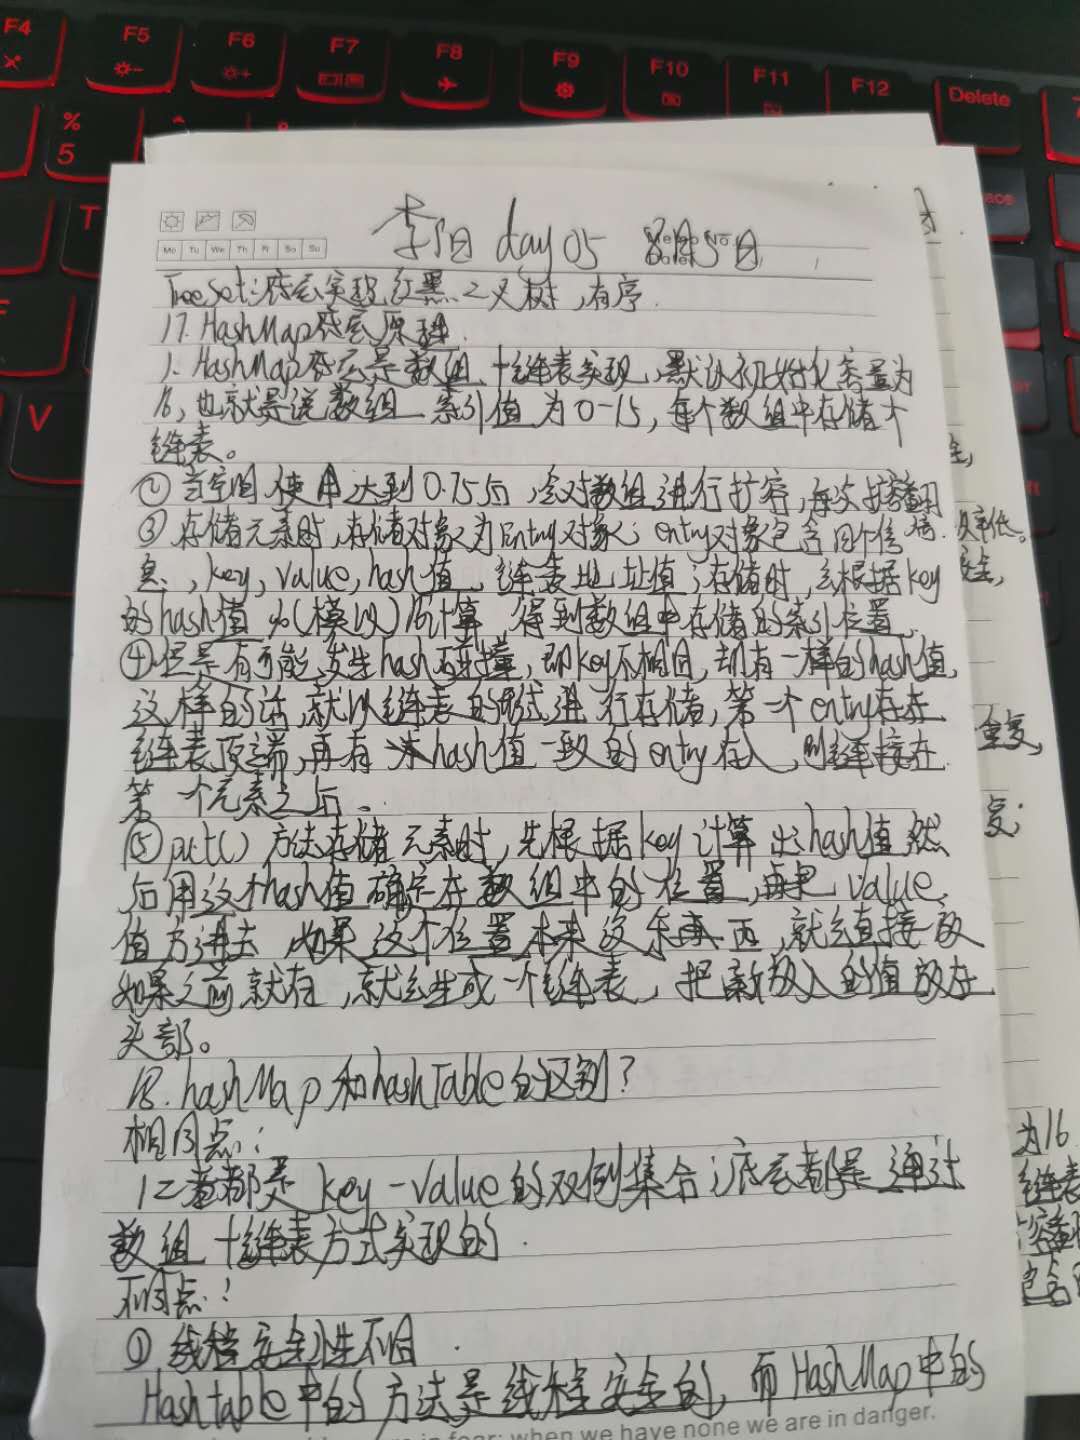 F4
F5
F6
F7
F8
F9
F10
F11
F12
Delete
%
5
T
V
Mo Tu We Th Fr Sa Su
李阳 day05 8月5日
TreeSet:底层实现红黑二叉树,有序.
17.HashMap底层原理.
1.HashMap底层是数组+链表实现,默认初始化容量为
16,也就是说数组 索引值为0-15,每个数组中存储个
链表。
②当空间使用达到0.75后,会对数组进行扩容,每次扩容翻
③存储元素时,存储对象为Entry对象;entry对象包含四个信 倍.
息,key,value,hash值,链表地址值;存储时,会根据key
的hash值%(模以)16计算,得到数组中存储的索引位置.
④但是有可能发生hash碰撞,即key不相同,却有一样的hash值,
这样的话,就以链表的形式进行存储,第一个entry存在
链表顶端,再有hash值一致的entry存入,则链接在
第一个元素之后.
⑤put()方法存储元素时,先根据key计算出hash值然
后用这个hash值确定在数组中的位置,再把value
值方进去 如果这个位置本来没东西,就会直接放
如果之前就有,就会生成一个链表,把新放入的值放在
头部。
18.hashMap和hashTable的区别?
相同点:
1二者都是key-value的双例集合;底层都是通过
数组+链表方式实现的.
不同点:
①线程安全性不同.
Hashtable中的方法是线程安全的,而HashMap中的
when we have none we are in danger.
效率低。
安全,
重复,
复;
为16
链表